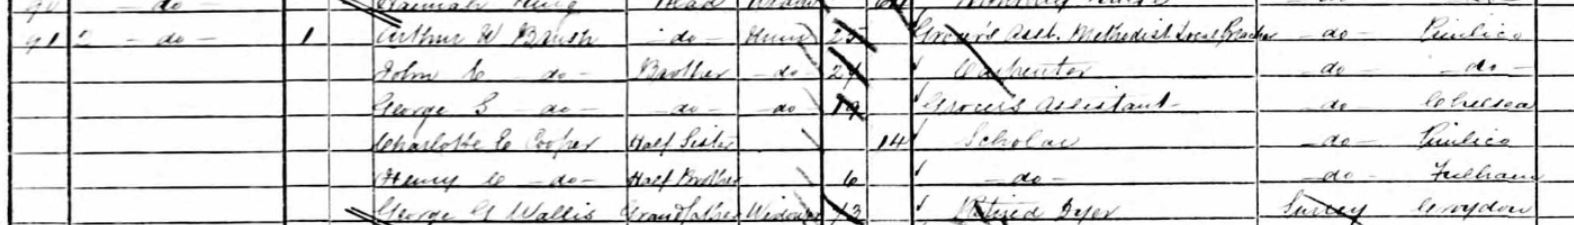 90 do Hannah King Head Widow 64 Monthly Nurse do
91 2 do 1 Arthur W Brush do Unm 25 Grocer's Asst. Methodist Local Preacher do Pimlico
John C do Brother do 24 Carpenter do do
George S do do do 19 Grocer's Assistant do Chelsea
Charlotte E Cooper Half Sister 14 Scholar do Pimlico
Henry C do Half Brother 6 do do Fulham
George G Wallis Grandfather Widower 73 Retired Dyer Surrey Croydon